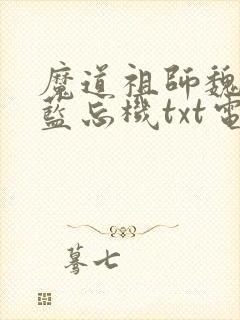 魔道祖師魏
藍忘機txt電
驀七